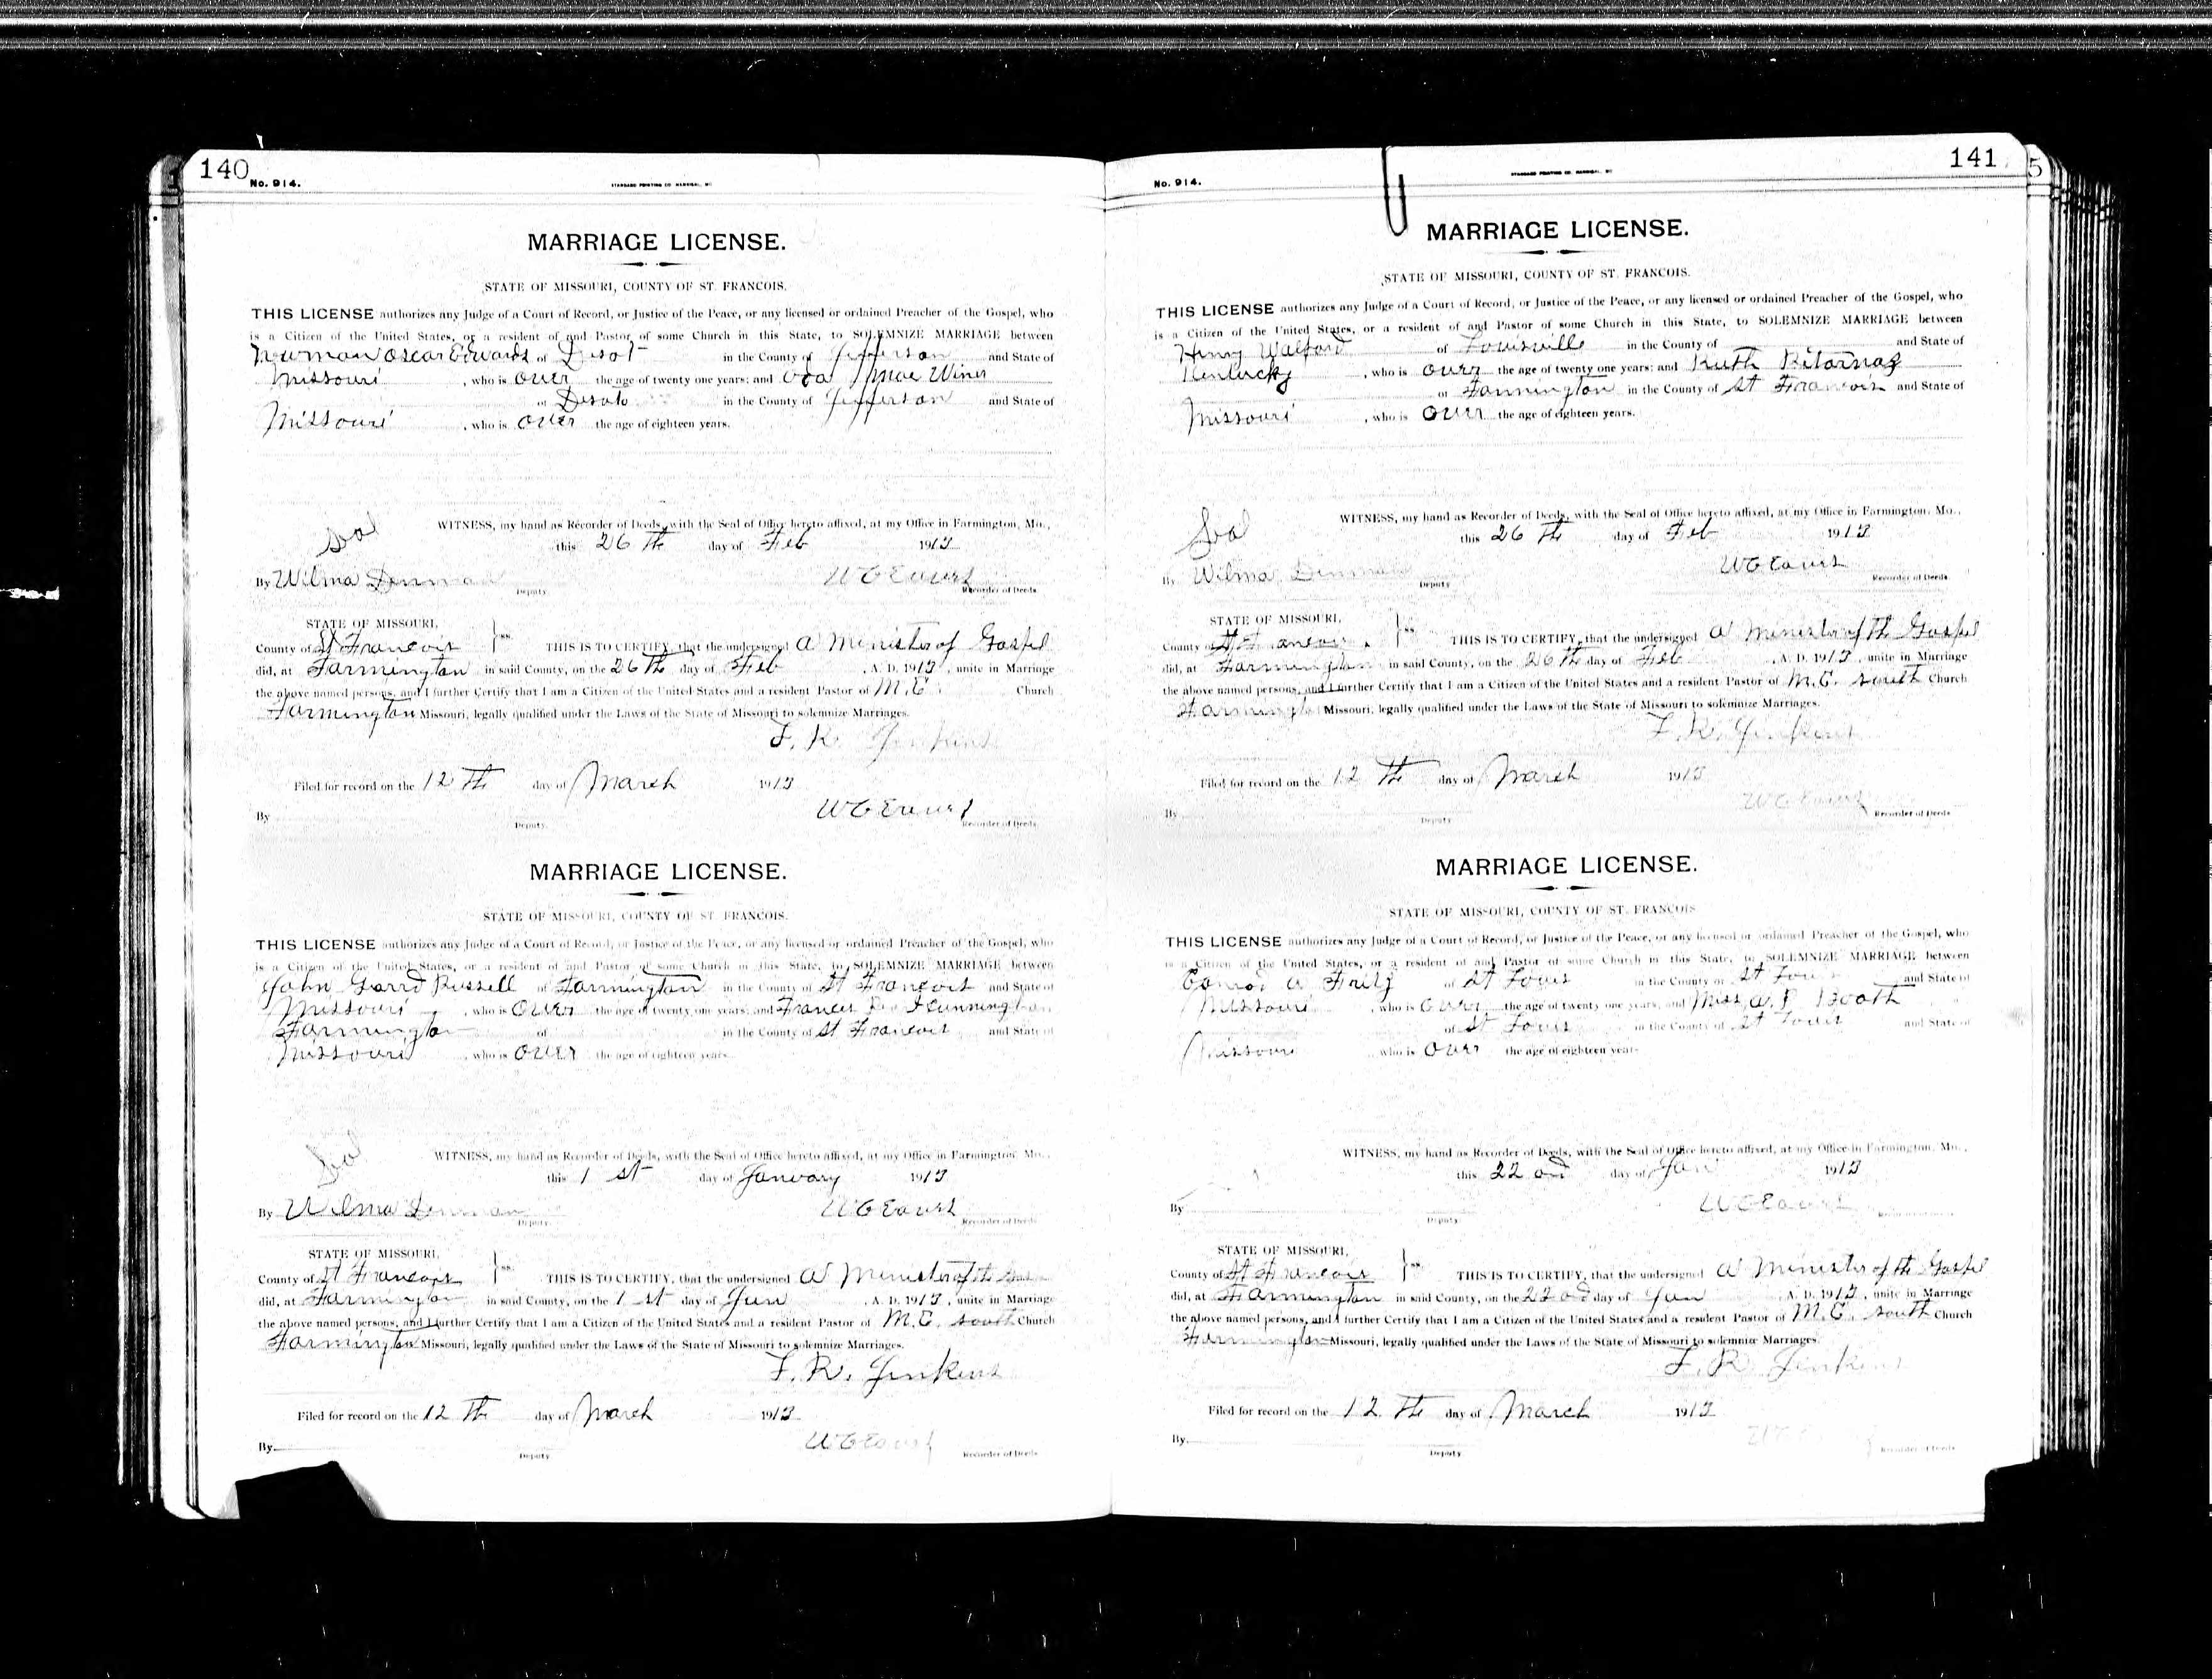 140
No. 914.
STANDARD PRINTING CO. HANNIBAL, MO
MARRIAGE LICENSE.
STATE OF MISSOURI, COUNTY OF ST. FRANCOIS.
THIS LICENSE authorizes any Judge of a Court of Record, or Justice of the Peace, or any licensed or ordained Preacher of the Gospel, who
is a Citizen of the United States, or a resident of and Pastor of some Church in this State, to SOLEMNIZE MARRIAGE between
Newman Oscar Edwards of Desot in the County of Jefferson and State of
Missouri, who is over the age of twenty one years; and Mae Winer
of Desoto in the County of Jefferson and State of
Missouri, who is over the age of eighteen years.
WITNESS, my hand as Recorder of Deeds, with the Seal of Office hereto affixed, at my Office in Farmington, Mo.,
Seal this 26 Th day of Feb 1913
By Wilma Denman Deputy. Recorder of Deeds.
STATE OF MISSOURI,
County of St Francois ss. THIS IS TO CERTIFY, that the undersigned a Minister of Gospel
did, at Farmington in said County, on the 26 Th day of Feb, A. D. 1913, unite in Marriage
the above named persons, and I further Certify that I am a Citizen of the United States and a resident Pastor of M.E. Church
Farmington Missouri, legally qualified under the Laws of the State of Missouri to solemnize Marriages.
F. R. Jenkins
Filed for record on the 12 Th day of March 1913
By Deputy. Recorder of Deeds.
MARRIAGE LICENSE.
STATE OF MISSOURI, COUNTY OF ST. FRANCOIS.
THIS LICENSE authorizes any Judge of a Court of Record, or Justice of the Peace, or any licensed or ordained Preacher of the Gospel, who
is a Citizen of the United States, or a resident of and Pastor of some Church in this State, to SOLEMNIZE MARRIAGE between
John Russell of Farmington in the County of St Francois and State of
Missouri, who is over the age of twenty one years; and Frances
Farmington of in the County of St Francois and State of
Missouri, who is over the age of eighteen years.
WITNESS, my hand as Recorder of Deeds, with the Seal of Office hereto affixed, at my Office in Farmington, Mo.,
Seal this 1 st day of January 1913
By Wilma Denman Deputy. Recorder of Deeds.
STATE OF MISSOURI,
County of St Francois ss. THIS IS TO CERTIFY, that the undersigned a Minister of the
did, at Farmington in said County, on the 1 st day of Jan, A. D. 1913, unite in Marriage
the above named persons, and I further Certify that I am a Citizen of the United States and a resident Pastor of M.E. south Church
Farmington Missouri, legally qualified under the Laws of the State of Missouri to solemnize Marriages.
F. R. Jenkins
Filed for record on the 12 Th day of March 1913
By Deputy. Recorder of Deeds.
141
5
No. 914.
STANDARD PRINTING CO. HANNIBAL, MO
MARRIAGE LICENSE.
STATE OF MISSOURI, COUNTY OF ST. FRANCOIS.
THIS LICENSE authorizes any Judge of a Court of Record, or Justice of the Peace, or any licensed or ordained Preacher of the Gospel, who
is a Citizen of the United States, or a resident of and Pastor of some Church in this State, to SOLEMNIZE MARRIAGE between
Henry Walford of Louisville in the County of and State of
Kentucky, who is over the age of twenty one years; and Ruth
of Farmington in the County of St Francois and State of
Missouri, who is over the age of eighteen years.
WITNESS, my hand as Recorder of Deeds, with the Seal of Office hereto affixed, at my Office in Farmington, Mo.,
Seal this 26 Th day of Feb 1913
By Wilma Denman Deputy Recorder of Deeds
STATE OF MISSOURI,
County of St Francois ss. THIS IS TO CERTIFY, that the undersigned a Minister of the Gospel
did, at Farmington in said County, on the 26 Th day of Feb, A. D. 1913, unite in Marriage
the above named persons, and I further Certify that I am a Citizen of the United States and a resident Pastor of M.E. south Church
Farmington Missouri, legally qualified under the Laws of the State of Missouri to solemnize Marriages.
F. R. Jenkins
Filed for record on the 12 Th day of March 1913
By Deputy Recorder of Deeds
MARRIAGE LICENSE.
STATE OF MISSOURI, COUNTY OF ST. FRANCOIS
THIS LICENSE authorizes any Judge of a Court of Record, or Justice of the Peace, or any licensed or ordained Preacher of the Gospel, who
is a Citizen of the United States, or a resident of and Pastor of some Church in this State, to SOLEMNIZE MARRIAGE between
Conrod W Fritz of St Louis in the County of St Louis and State of
Missouri, who is over the age of twenty one years, and Miss Booth
of St Louis in the County of St Louis and State of
Missouri who is over the age of eighteen years
WITNESS, my hand as Recorder of Deeds, with the Seal of Office hereto affixed, at my Office in Farmington, Mo.,
this 22 nd day of Jan 1913
By Deputy
STATE OF MISSOURI,
County of St Francois ss. THIS IS TO CERTIFY, that the undersigned a Minister of the Gospel
did, at Farmington in said County, on the 22 nd day of Jan, A. D. 1913, unite in Marriage
the above named persons, and I further Certify that I am a Citizen of the United States and a resident Pastor of M.E. south Church
Farmington Missouri, legally qualified under the Laws of the State of Missouri to solemnize Marriages.
F. R. Jenkins
Filed for record on the 12 Th day of March 1913
By Deputy Recorder of Deeds